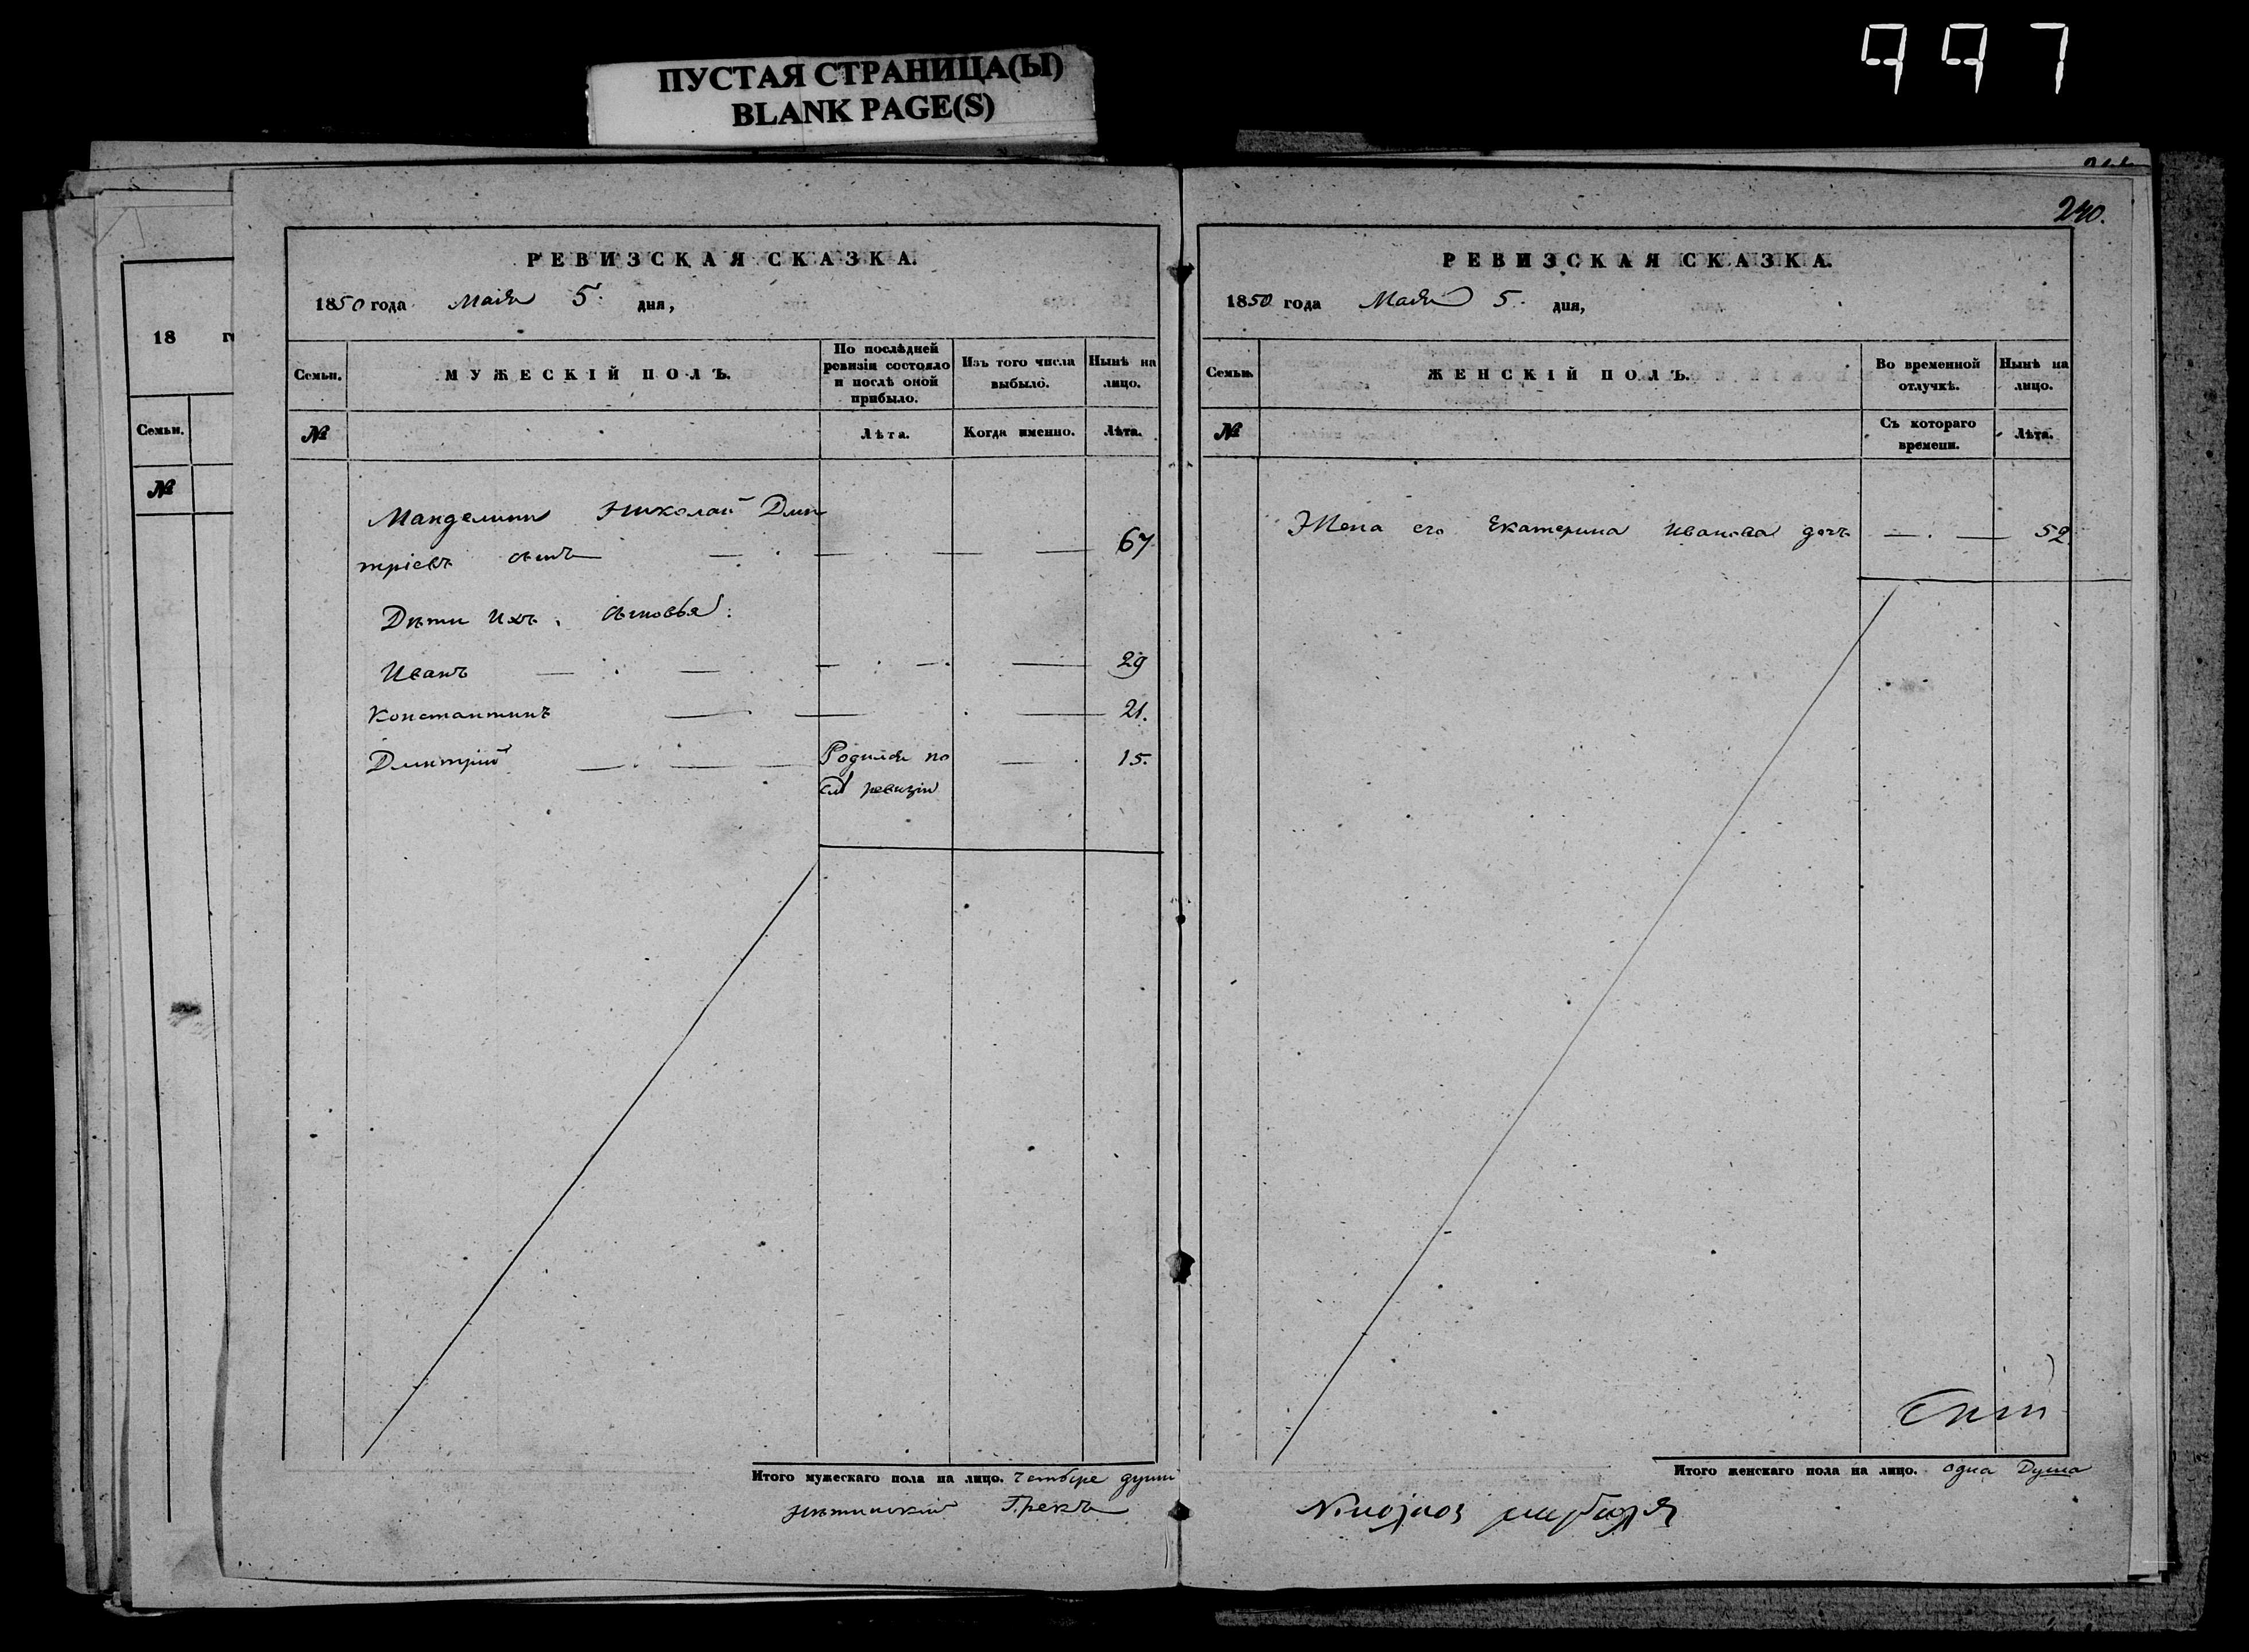 ПУСТАЯ СТРАНИЦА(Ы)
BLANK PAGE(S)
997
240.
18 го
Семьи.
№
РЕВИЗСКАЯ СКАЗКА.
1850 года Маія 5. дня,
Семьи. МУЖЕСКІЙ ПОЛЪ. По послѣдней ревизіи состояло и послѣ оной прибыло. Изъ того числа выбыло. Нынѣ на лицо.
№ Лѣта. Когда именно. Лѣта.
Манделини Николай Дми
тріевъ сынъ 67
Дѣти ихъ, сыновья:
Иванъ 29
Константинъ 21.
Дмитрій Родился по 15.
слѣ ревизіи
Итого мужескаго пола на лицо. Четыре души
Нѣжинскій Грекъ
РЕВИЗСКАЯ СКАЗКА.
1850 года Маія 5. дня,
Семьи. ЖЕНСКІЙ ПОЛЪ. Во временной отлучкѣ. Нынѣ на лицо.
№ Съ котораго времени. Лѣта.
Жена его Екатерина Иванова дочь 52
Итого женскаго пола на лицо. одна Душа